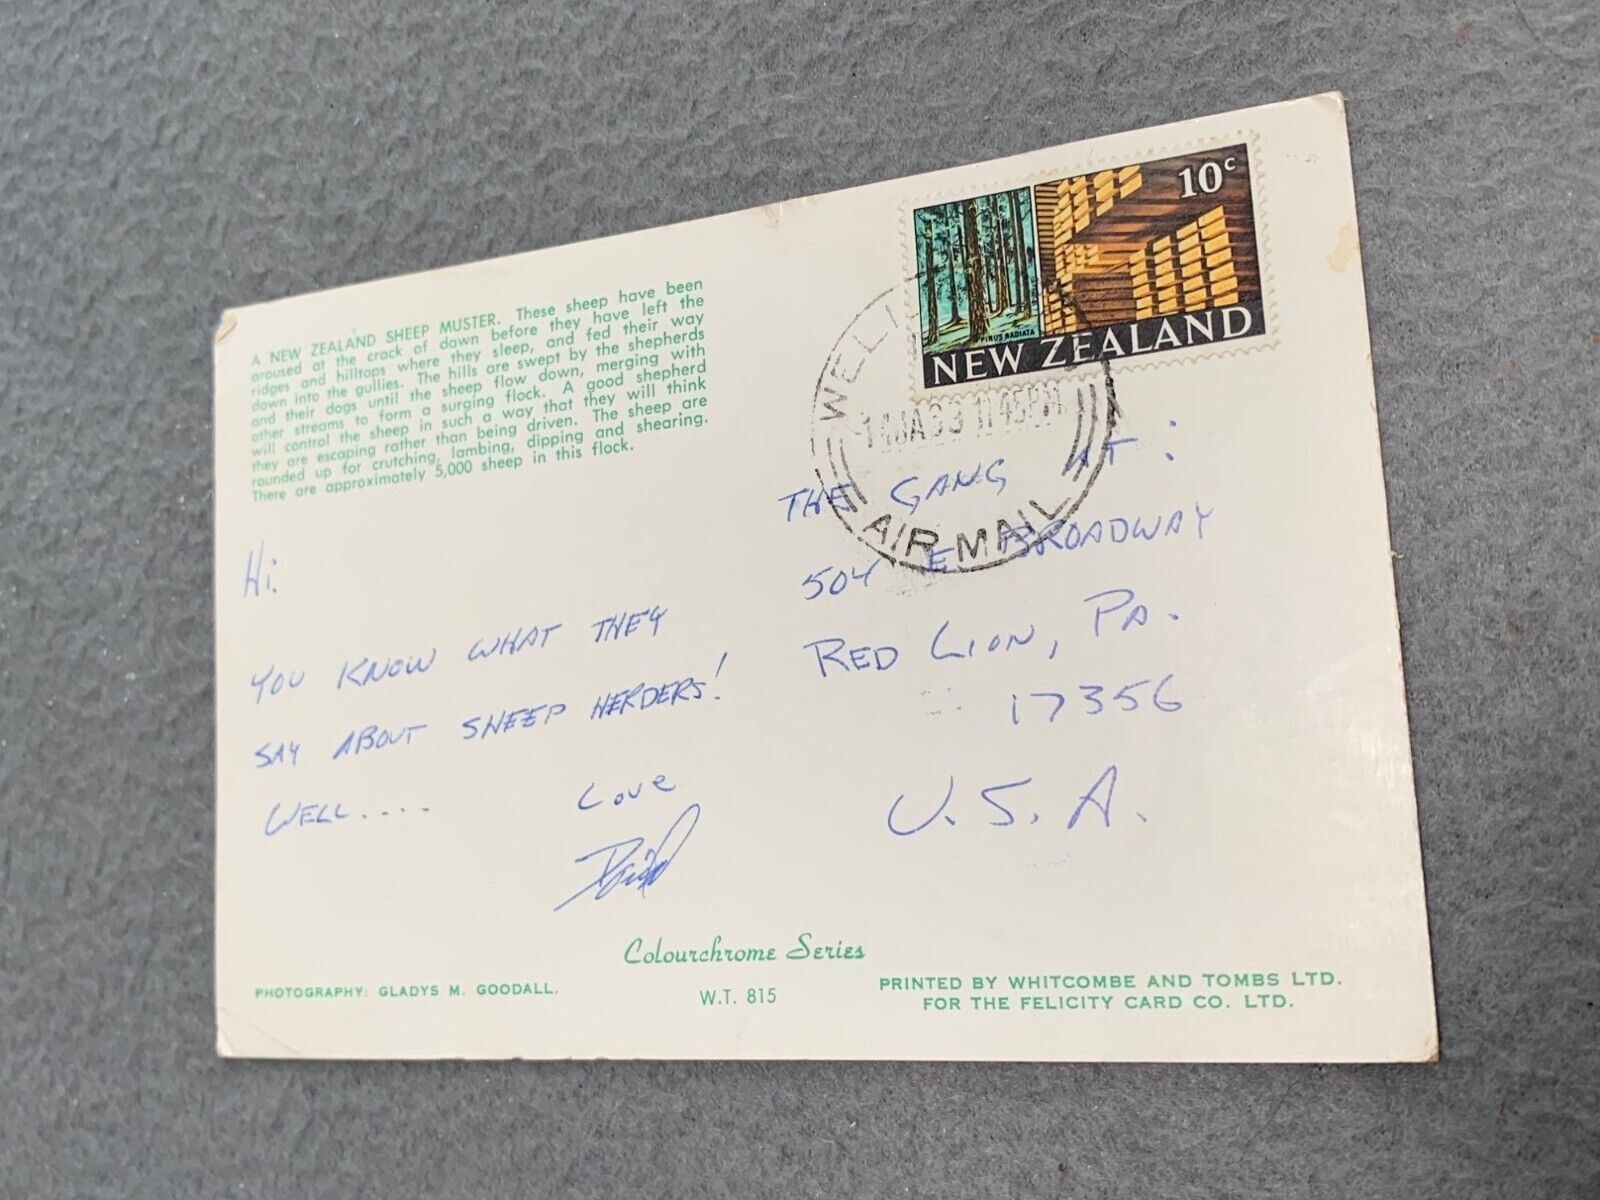 A NEW ZEALAND SHEEP MUSTER. These sheep have been
aroused at the crack of dawn before they have left the
ridges and hilltops where they sleep, and fed their way
down into the gullies. The hills are swept by the shepherds
and their dogs until the sheep flow down, merging with
other streams to form a surging flock. A good shepherd
will control the sheep in such a way that they will think
they are escaping rather than being driven. The sheep are
rounded up for crutching, lambing, dipping and shearing.
There are approximately 5,000 sheep in this flock.
Hi.
YOU KNOW WHAT THEY
SAY ABOUT SHEEP HERDERS!
WELL....
Love
David
10c
PINUS RADIATA
NEW ZEALAND
11 45PM
AIR MAIL
THE GANG AT:
504 E. BROADWAY
RED LION, PA.
17356
U.S.A.
Colourchrome Series
PHOTOGRAPHY: GLADYS M. GOODALL.
W.T. 815
PRINTED BY WHITCOMBE AND TOMBS LTD.
FOR THE FELICITY CARD CO. LTD.